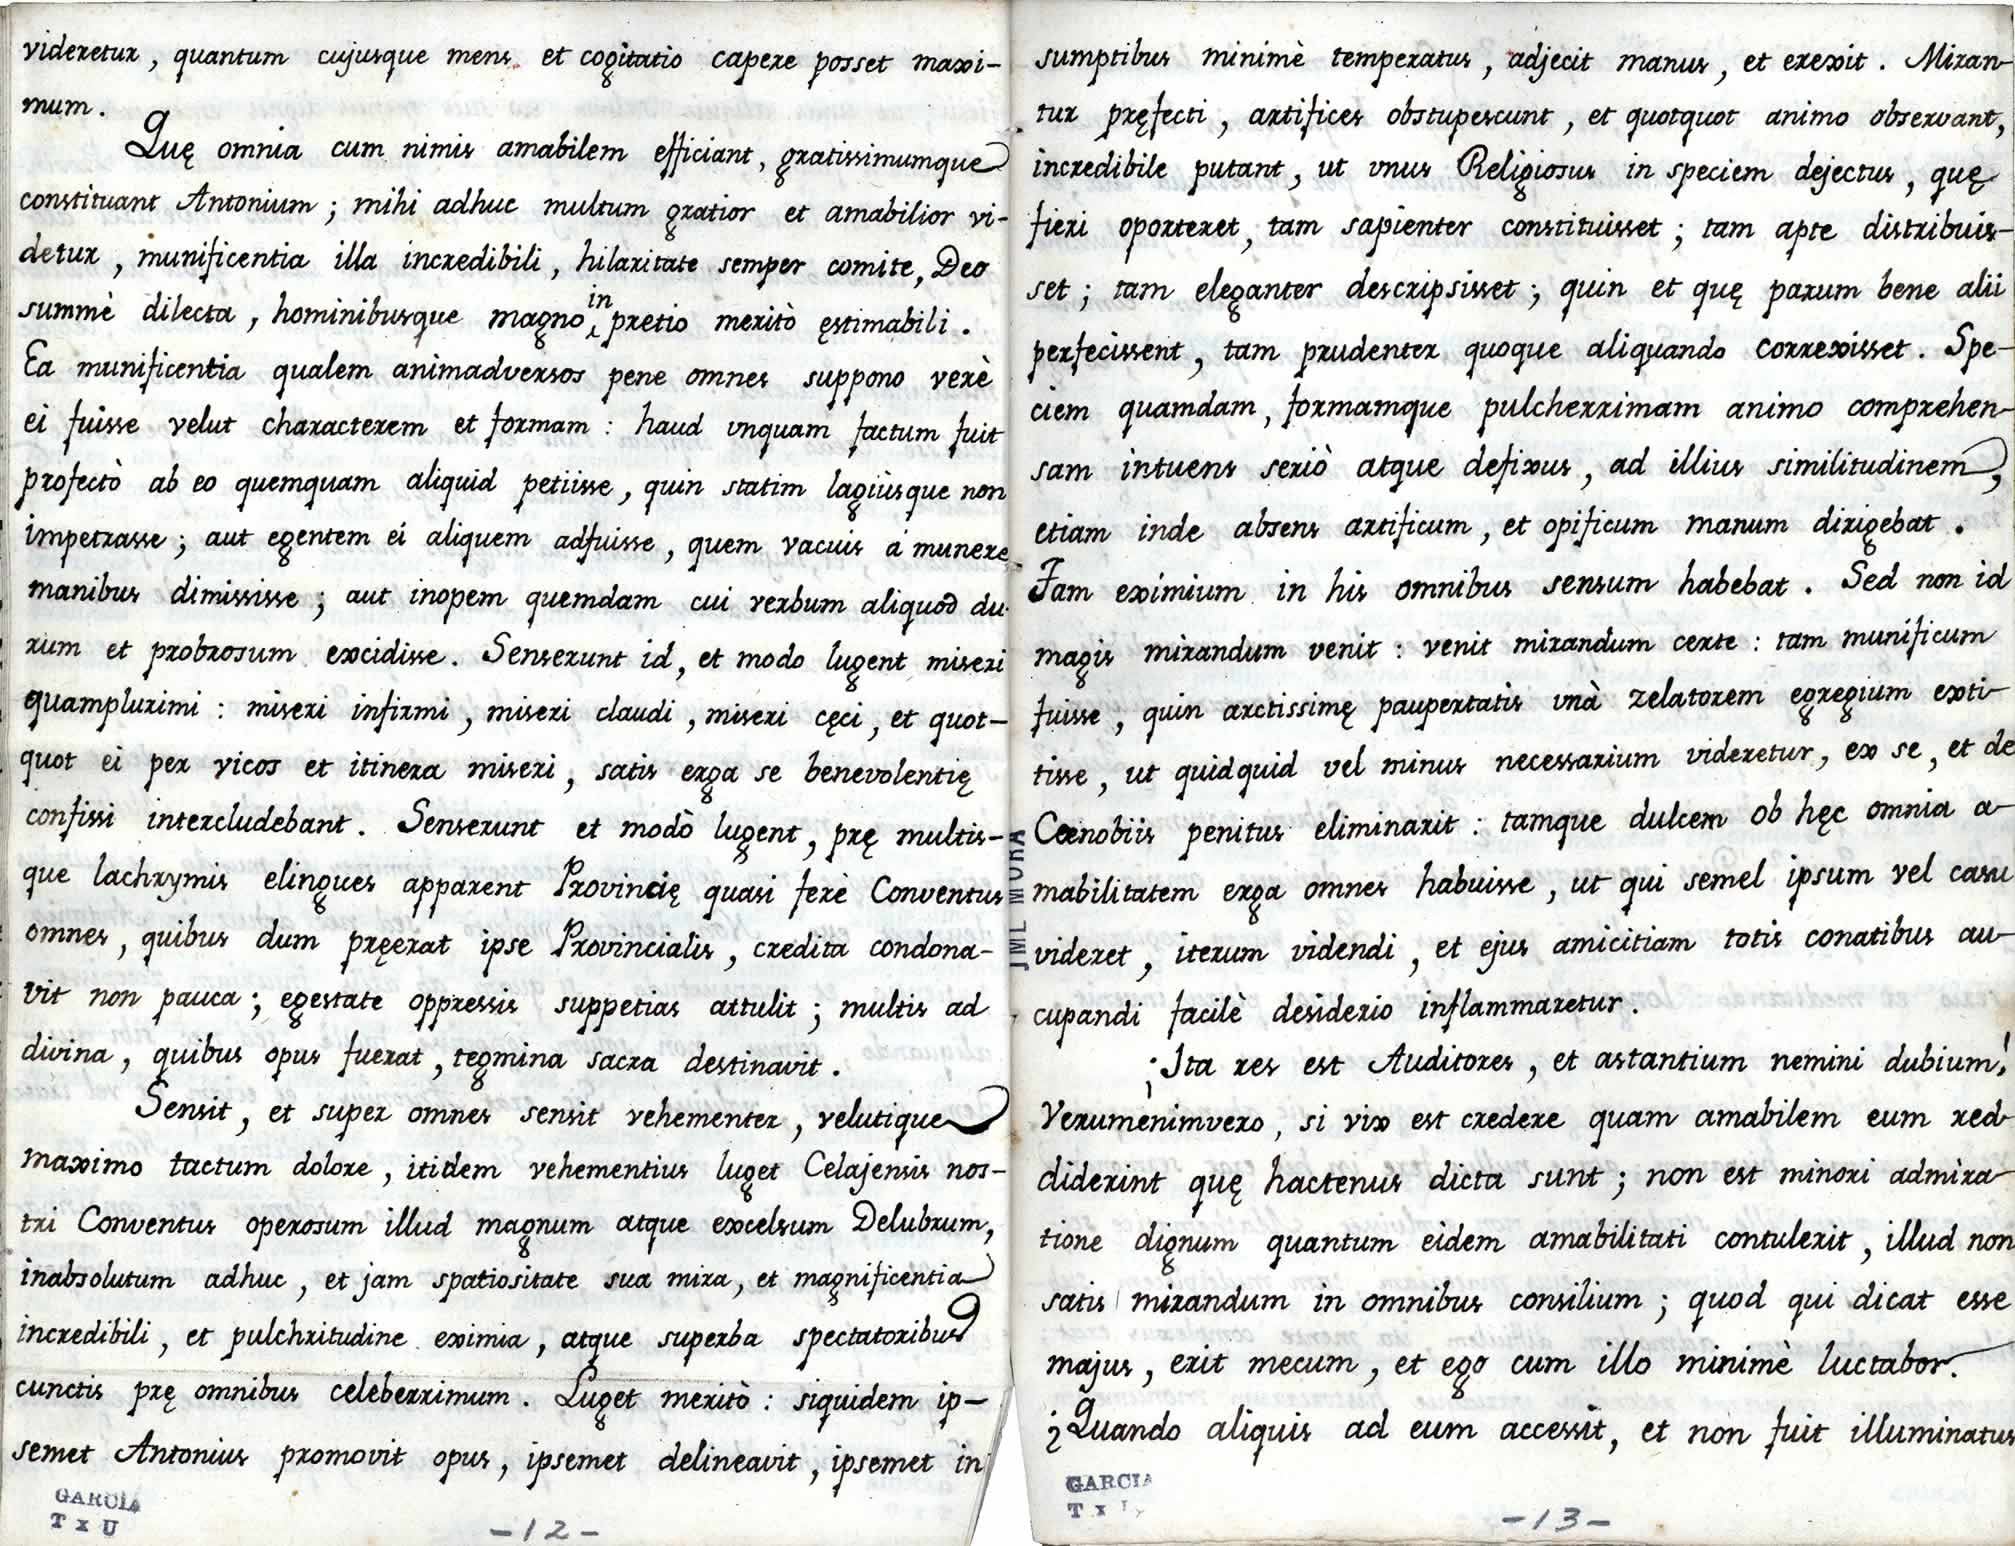 videretur, quantum cujusque mens et cogitatio capere posset maxi-
mum.
Quę omnia cum nimis amabilem efficiant, gratissimumque
constituant Antonium; mihi adhuc multum gratior et amabilior vi-
detur, munificentia illa incredibili, hilaritate semper comite, Deo
summè dilecta, hominibusque magno in pretio meritò ęstimabili.
Ea munificentia qualem animadversos pene omnes suppono verè
ei fuisse velut characterem et formam: haud vnquam factum fuit
profectò ab eo quemquam aliquid petiisse, quin statim lagiùsque non
impetrasse; aut egentem ei aliquem adfuisse, quem vacuis á munere
manibus dimississe; aut inopem quemdam cui verbum aliquod du-
rum et probrosum excidisse. Senserunt id, et modo lugent miseri
quamplurimi: miseri infirmi, miseri claudi, miseri cęci, et quot-
quot ei per vicos et itinera miseri, satis erga se benevolentię
confissi intercludebant. Senserunt et modò lugent, prę multis-
que lachrymis elingues apparent Provincię quasi ferè Conventus
omnes, quibus dum pręerat ipse Provincialis, credita condona-
vit non pauca; egestate oppressis suppetias attulit; multis ad
divina, quibus opus fuerat, tegmina sacra destinavit.
Sensit, et super omnes sensit vehementer, velutique
maximo tactum dolore, itidem vehementius luget Celajensis nos-
tri Conventus operosum illud magnum atque excelsum Delubrum,
inabsolutum adhuc, et jam spatiositate sua mira, et magnificentia
incredibili, et pulchritudine eximia, atque superba spectatoribus
cunctis prę omnibus celeberrimum. Luget meritò: siquidem ip-
semet Antonius promovit opus, ipsemet delineavit, ipsemet in
GARCIA
T x U
-12-
JML MORA
sumptibus minimè temperatus, adjecit manus, et erexit. Miran-
tur pręfecti, artifices obstupescunt, et quotquot animo observant,
incredibile putant, ut vnus Religiosus in speciem dejectus, quę
fieri oporteret, tam sapienter constituisset; tam apte distribuis-
set; tam eleganter descripsisset; quin et quę parum bene alii
perfecissent, tam prudenter quoque aliquando correxisset. Spe-
ciem quamdam, formamque pulcherrimam animo comprehen-
sam intuens seriò atque defixus, ad illius similitudinem,
etiam inde absens artificum, et opificum manum dirigebat.
Tam eximium in his omnibus sensum habebat. Sed non id
magis mirandum venit: venit mirandum certe: tam munificum
fuisse, quin arctissimę paupertatis vnà zelatorem egregium exti-
tisse, ut quidquid vel minus necessarium videretur, ex se, et de
Cœnobiis penitus eliminarit: tamque dulcem ob hęc omnia a-
mabilitatem erga omnes habuisse, ut qui semel ipsum vel casu
videret, iterum videndi, et ejus amicitiam totis conatibus au-
cupandi facilè desiderio inflammaretur.
¡Ita res est Auditores, et astantium nemini dubium!
Verumenimvero, si vix est credere quam amabilem eum red-
diderint quę hactenus dicta sunt; non est minori admira-
tione dignum quantum eidem amabilitati contulerit, illud non
satis mirandum in omnibus consilium; quod qui dicat esse
majus, erit mecum, et ego cum illo minimè luctabor.
¿Quando aliquis ad eum accessit, et non fuit illuminatus
GARCIA
T x
-13-